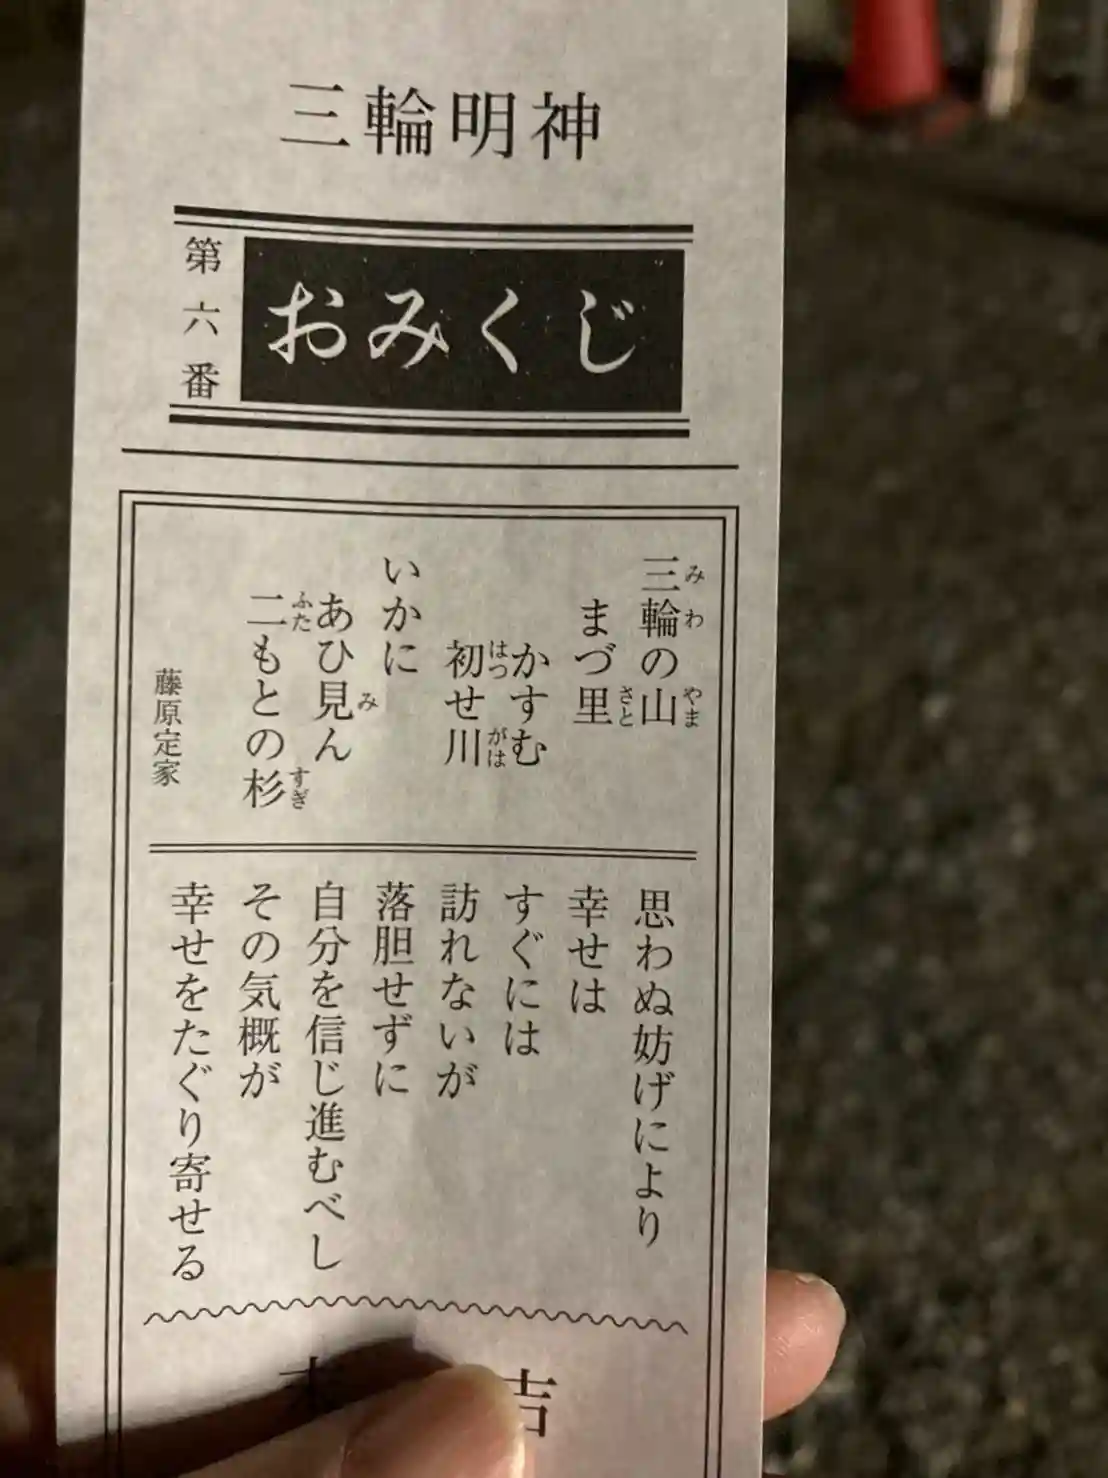 三輪明神
第六番
おみくじ
三輪の山
みわ
やま
まづ里
さと
かすむ
初せ川
はつ
がは
いかに
あひ見ん
み
二もとの杉
ふた
すぎ
藤原定家
思わぬ妨げにより
幸せは
すぐには
訪れないが
落胆せずに
自分を信じ進むべし
その気概が
幸せをたぐり寄せる
吉